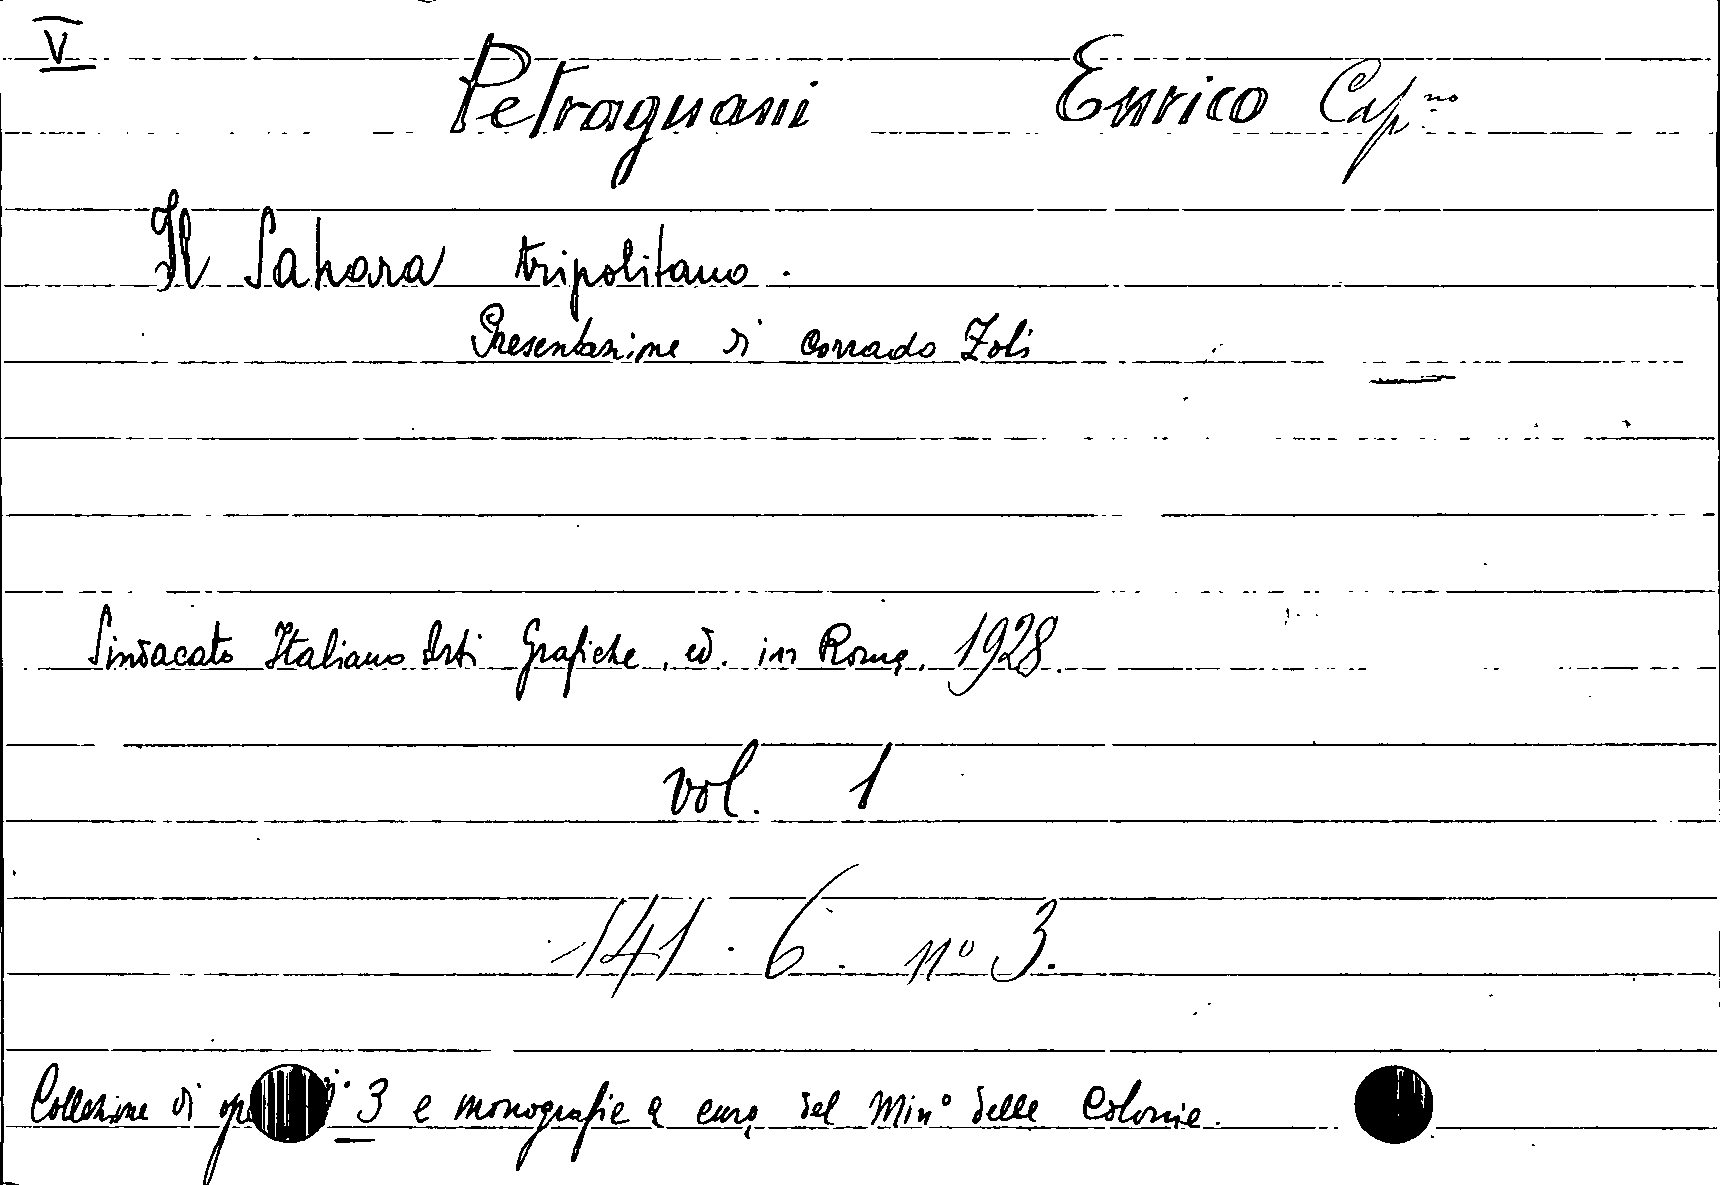 V
Petragnani Enrico Cap.no
Il Sahara tripolitano.
Presentazione di Corrado Zoli
Sindacato Italiano Arti Grafiche, ed. in Roma, 1928.
vol. 1
141. 6. nº 3.
Collezione di 3 e monografie a cura del Minº delle Colonie.